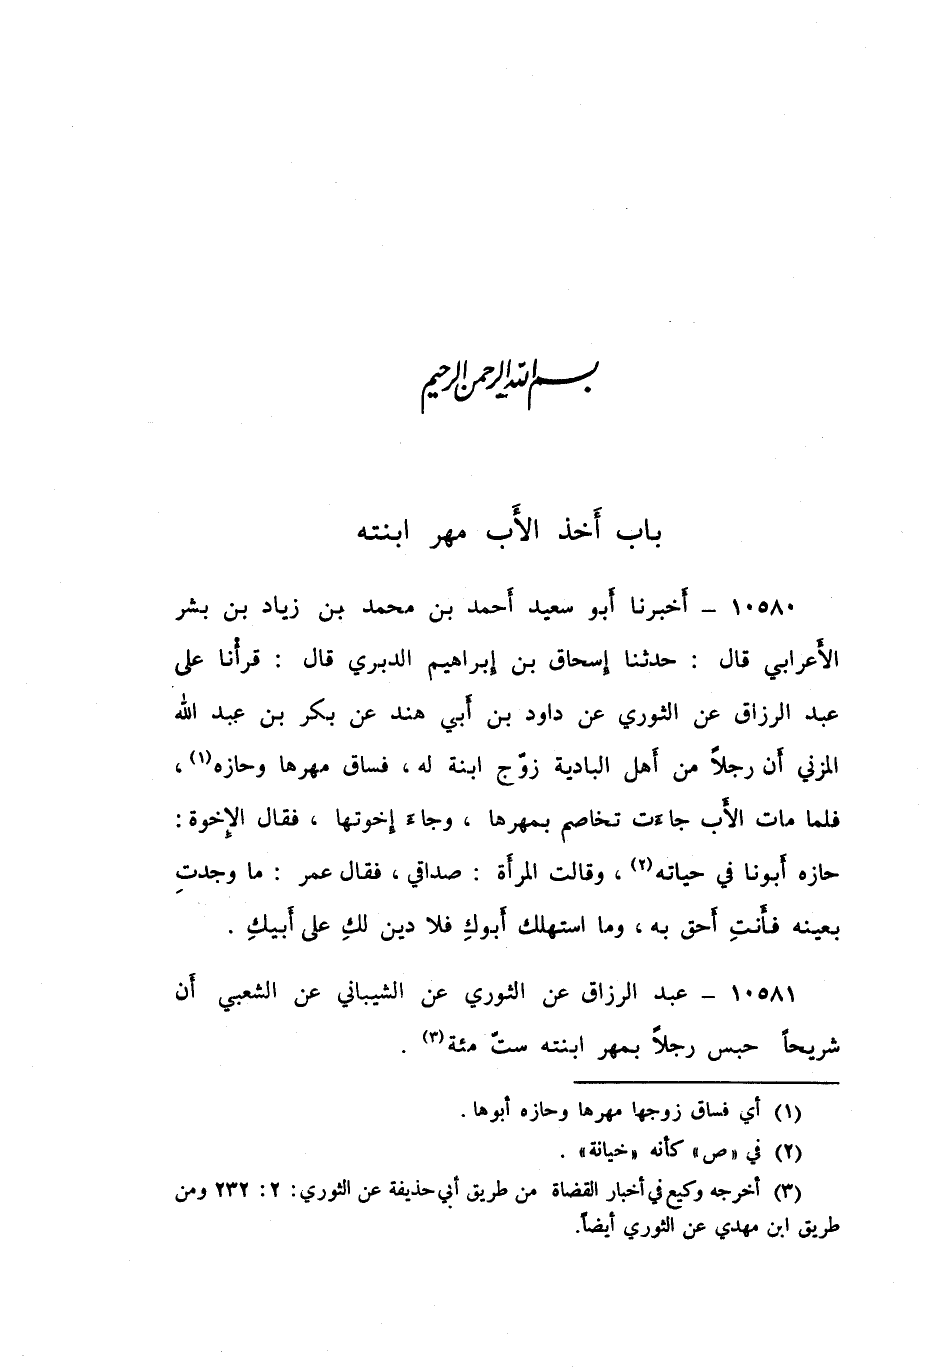 بسم الله الرحمن الرحيم
باب أَخذ الأَب مهر ابنته
١٠٥٨٠ – أَخبرنا أَبو سعيد أَحمد بن محمد بن زياد بن بشر
الأَعرابي قال : حدثنا إسحاق بن إبراهيم الدبري قال : قرأْنا على
عبد الرزاق عن الثوري عن داود بن أَبي هند عن بكر بن عبد الله
المزني أَن رجلاً من أَهل البادية زوّج ابنة له ، فساق مهرها وحازه(١) ،
فلما مات الأَب جاءَت تخاصم بمهرها ، وجاءَ إخوتها ، فقال الإِخوة :
حازه أَبونا في حياته(٢) ، وقالت المرأَة : صداقي ، فقال عمر : ما وجدتِ
بعينه فأَنتِ أَحق به ، وما استهلك أَبوكِ فلا دين لكِ على أَبيكِ .
١٠٥٨١ – عبد الرزاق عن الثوري عن الشيباني عن الشعبي أَن
شريحاً حبس رجلاً بمهر ابنته ستّ مئة(٣) .
(١) أي فساق زوجها مهرها وحازه أبوها .
(٢) في «ص» كأنه «خيانة» .
(٣) أخرجه وكيع في أخبار القضاة من طريق أبي حذيفة عن الثوري : ٢ : ٢٣٢ ومن
طريق ابن مهدي عن الثوري أيضاً.